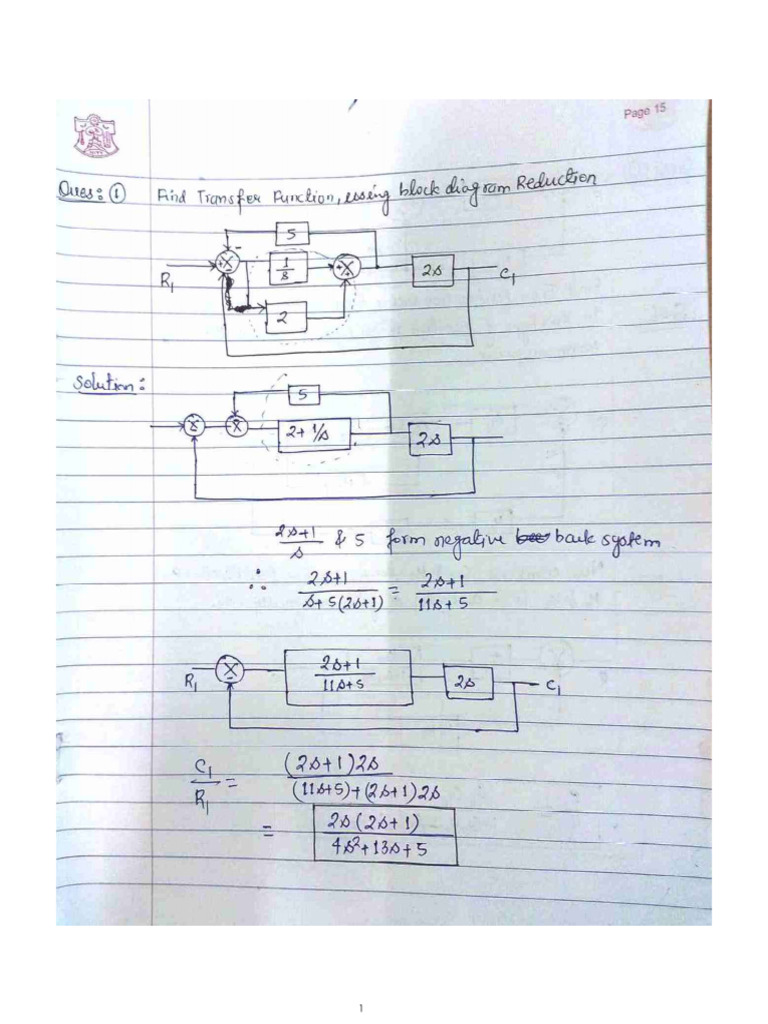 Page 15
Ques: ① Find Transfer Function, using block diagram Reduction
5
-
R₁ + x - 1/s + x + 2s C₁
2
Solution:
5
x - x - 2+1/s 2s
(2s+1)/s & 5 form negative back system
∴ (2s+1)/(s+5(2s+1)) = (2s+1)/(11s+5)
R₁ x - (2s+1)/(11s+5) 2s C₁
C₁/R₁ = (2s+1)2s/((11s+5)+(2s+1)2s)
= 2s(2s+1)/(4s²+13s+5)
1